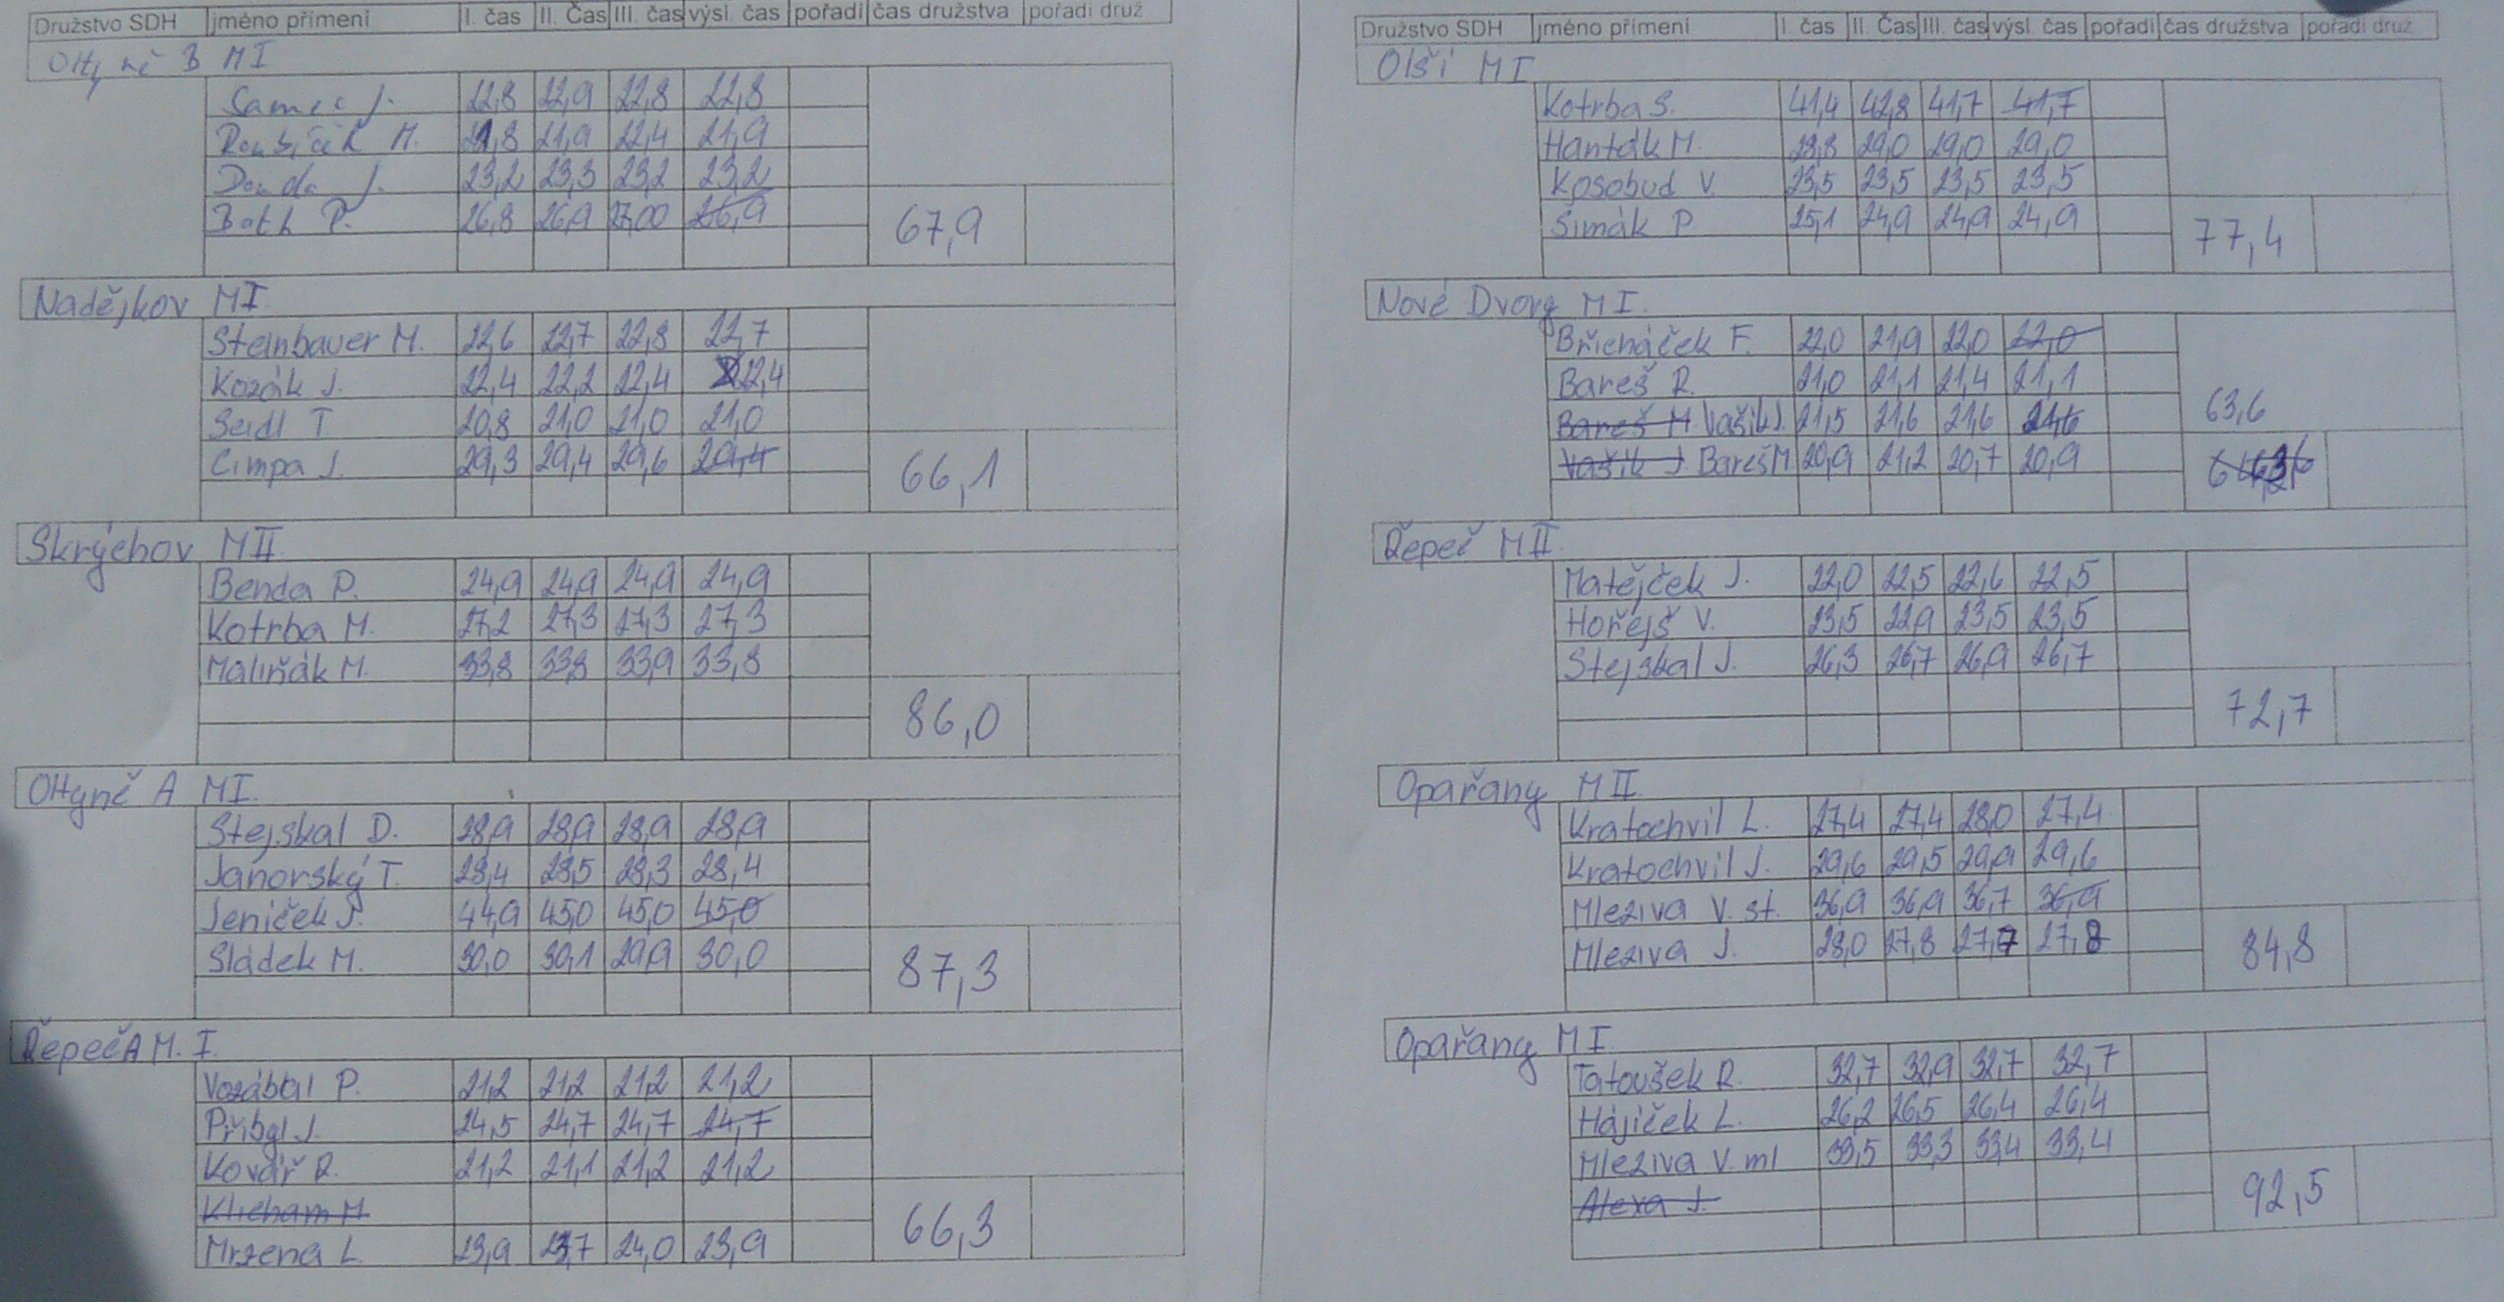 Družstvo SDH jméno přímení I. čas II. Čas III. čas výsl. čas pořadí čas družstva pořadí druž
Oltyně B MI
Samec J. 22,8 22,9 22,8 22,8
Roubíček M. 21,8 21,9 22,4 21,9
Douda J. 23,2 23,3 23,2 23,2
Bath P. 26,8 26,9 27,00 26,9
67,9
Nadějkov MI.
Steinbauer M. 22,6 22,7 22,8 22,7
Kozák J. 22,4 22,2 22,4 22,4
Seidl T 20,8 21,0 21,0 21,0
Cimpa J. 29,3 29,4 29,6 29,4
66,1
Skrýchov MII
Benda P. 24,9 24,9 24,9 24,9
Kotrba M. 27,2 27,3 27,3 27,3
Maliňák M. 33,8 33,8 33,9 33,8
86,0
Oltyně A MI.
Stejskal D. 28,9 28,9 28,9 28,9
Janovský T. 28,4 28,5 28,3 28,4
Jeníček J. 44,9 45,0 45,0 45,0
Sládek M. 30,0 30,1 29,9 30,0
87,3
Řepeč A M. I.
Vozábal P. 21,2 21,2 21,2 21,2
Přibyl J. 24,5 24,7 24,7 24,7
Kovář R. 21,2 21,1 21,2 21,2
Klicham M
Mrzena L. 23,9 23,7 24,0 23,9
66,3
Družstvo SDH jméno přímení I. čas II. Čas III. čas výsl. čas pořadí čas družstva pořadí druž
Olší MI
Kotrba S. 41,4 42,8 41,7 41,7
Hanták M. 28,8 29,0 29,0 29,0
Kosobud V. 23,5 23,5 23,5 23,5
Šimák P 25,1 24,9 24,9 24,9
77,4
Nové Dvory MI.
Břicháček F. 22,0 21,9 22,0 22,0
Bareš R. 21,0 21,1 21,4 21,1
Bareš M Vašík J. 21,5 21,6 21,6 21,6
63,6
Vašík J Bareš M 20,9 21,2 20,7 20,9
Řepeč MII
Matějček J. 22,0 22,5 22,6 22,5
Hořejš V. 23,5 22,9 23,5 23,5
Stejskal J. 26,3 26,7 26,9 26,7
72,7
Opařany MII
Kratochvíl L. 27,4 27,4 28,0 27,4
Kratochvíl J. 29,6 29,5 29,9 29,6
Mleziva V. st. 36,9 36,9 36,7 36,9
Mleziva J. 28,0 27,8 27,7 27,8
84,8
Opařany MI
Tatoušek R. 32,7 32,9 32,7 32,7
Hájíček L. 26,2 26,5 26,4 26,4
Mleziva V. ml 33,5 33,3 33,4 33,4
Alexa J.
92,5